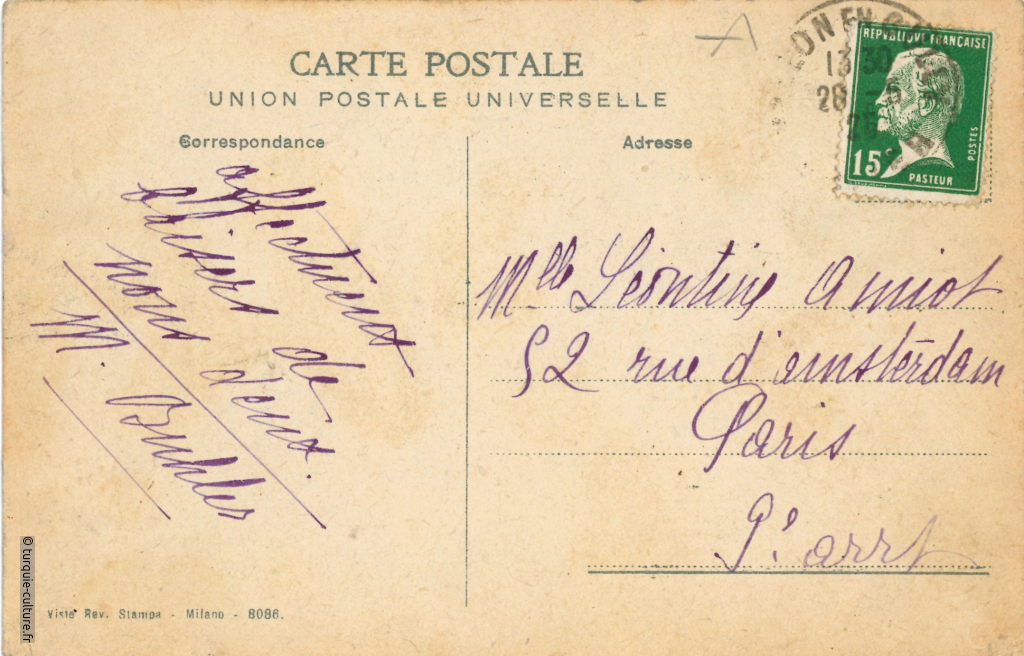 CARTE POSTALE
UNION POSTALE UNIVERSELLE
Correspondance
affectueux
baisers de
nous deux.
M. Buhler
Adresse
Mlle Léontine Amiot
52 rue d'amsterdam
Paris
9e arrt
REPVBLIQVE FRANCAISE
15c
POSTES
PASTEUR
13 30
28 - 6
Visto Rev. Stampa - Milano - 8086.
© turquie-culture.fr